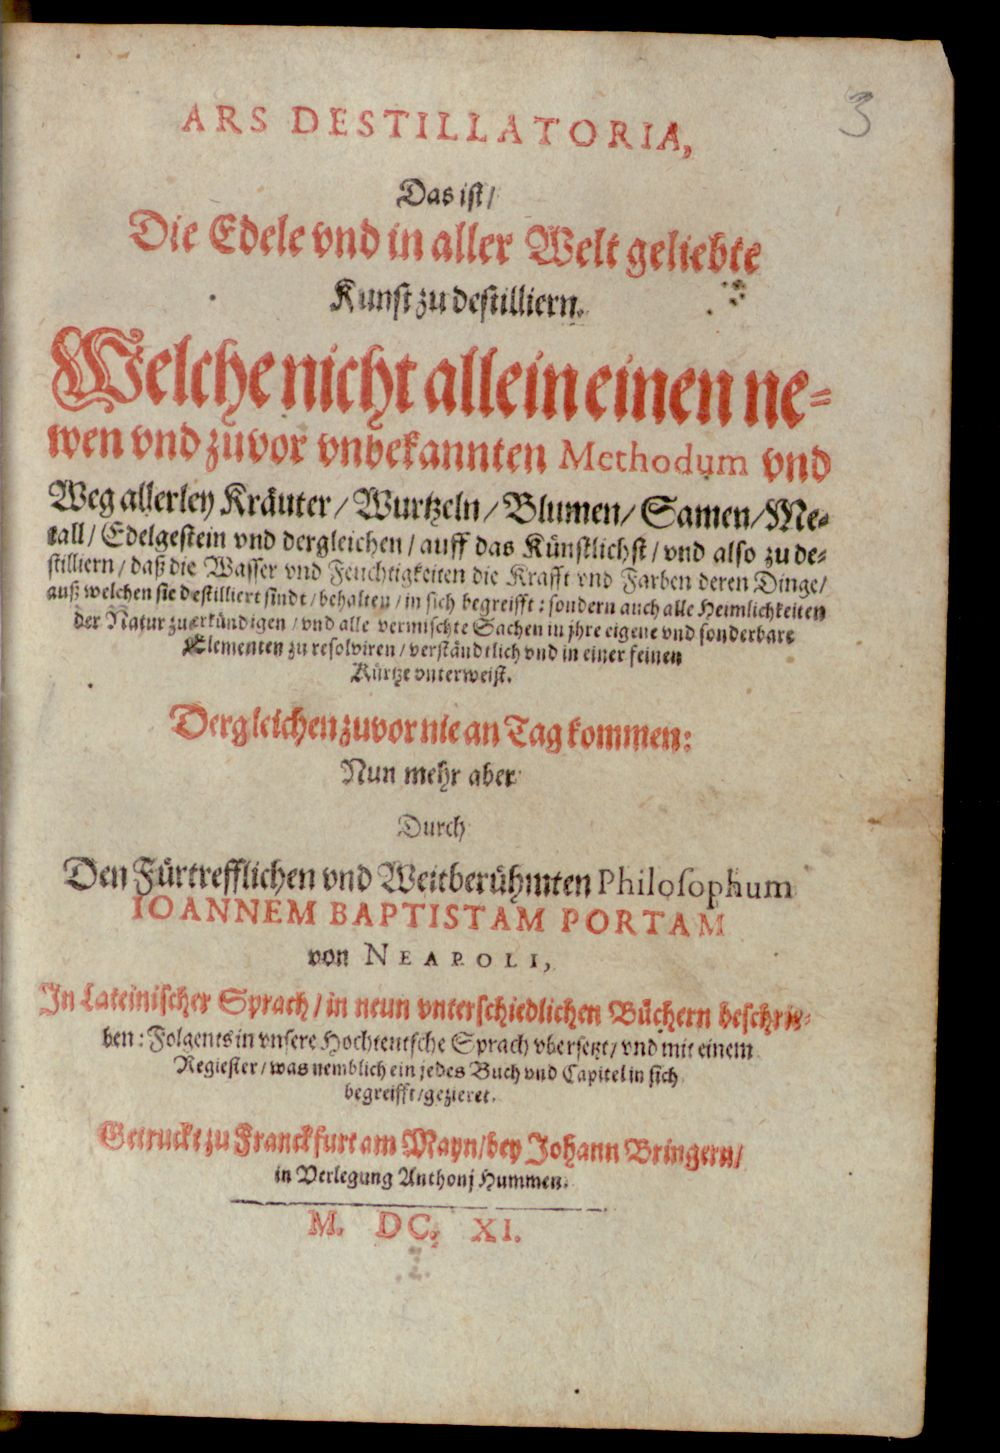 3
ARS DESTILLATORIA,
Das ist/
Die Edele vnd in aller Welt geliebte
Kunst zu destilliern.
Welche nicht allein einen ne-
wen vnd zuvor vnbekannten Methodum vnd
Weg allerley Kräuter/ Wurtzeln/ Blumen/ Samen/ Me-
tall/ Edelgestein vnd dergleichen/ auff das Künstlichst/ vnd also zu de-
stilliern/ daß die Wasser vnd Feuchtigkeiten die Krafft vnd Farben deren Dinge/
auß welchen sie destilliert sindt/ behalten/ in sich begreifft: sondern auch alle Heimlichkeiten
der Natur zu erkündigen/ vnd alle vermischte Sachen in jhre eigene vnd sonderbare
Elementen zu resolviren/ verständtlich vnd in einer feinen
Kürtze vnterweist.
Dergleichen zuvor nie an Tag kommen:
Nun mehr aber
Durch
Den Fürtrefflichen vnd Weitberühmten Philosophum
IOANNEM BAPTISTAM PORTAM
von NEAPOLI,
In Lateinischer Sprach/ in neun vnterschiedlichen Büchern beschrie-
ben: Folgents in vnsere Hochteutsche Sprach vbersetzt/ vnd mit einem
Regiester/ was nemblich ein jedes Buch vnd Capitel in sich
begreifft/ gezieret.
Getruckt zu Franckfurt am Mayn/ bey Johann Bringern/
in Verlegung Anthonj Hummen.
M. DC. XI.